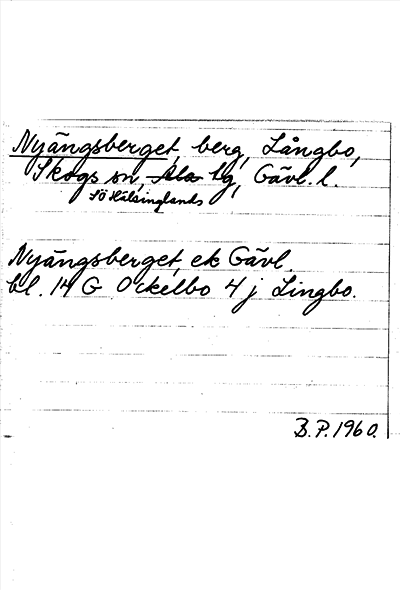 Nyängsberget, berg, Långbo,
Skogs sn, Ala tg, Gävl. l.
Sö Hälsinglands
Nyängsberget, ek Gävl.
bl. 14 G Ockelbo 4 j Lingbo.
B.P. 1960.